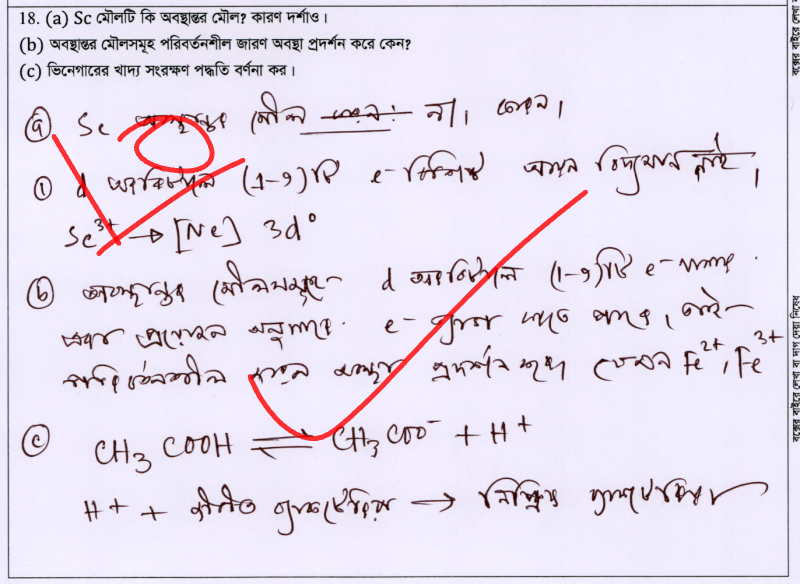 18. (a) Sc মৌলটি কি অবস্থান্তর মৌল? কারণ দর্শাও।
(b) অবস্থান্তর মৌলসমূহ পরিবর্তনশীল জারণ অবস্থা প্রদর্শন করে কেন?
(c) ভিনেগারের খাদ্য সংরক্ষণ পদ্ধতি বর্ণনা কর।
ⓐ Sc অবস্থান্তর মৌল না।
① d অরবিটালে (1-9)টি e- বিশিষ্ট আয়ন বিদ্যমান নাই।
Sc³⁺ → [Ne] 3d⁰
ⓑ অবস্থান্তর মৌলসমূহ d অরবিটালে (1-9)টি e-
প্রয়োজন অনুসারে e- ত্যাগ করতে পারে। তাই
পরিবর্তনশীল জারণ অবস্থা প্রদর্শন করে যেমন Fe²⁺, Fe³⁺
ⓒ CH₃COOH ⇌ CH₃COO⁻ + H⁺
H⁺ + জীবিত ব্যাকটেরিয়া → নিষ্ক্রিয় ব্যাকটেরিয়া
বক্সের বাইরে লেখা বা দাগ দেয়া নিষেধ